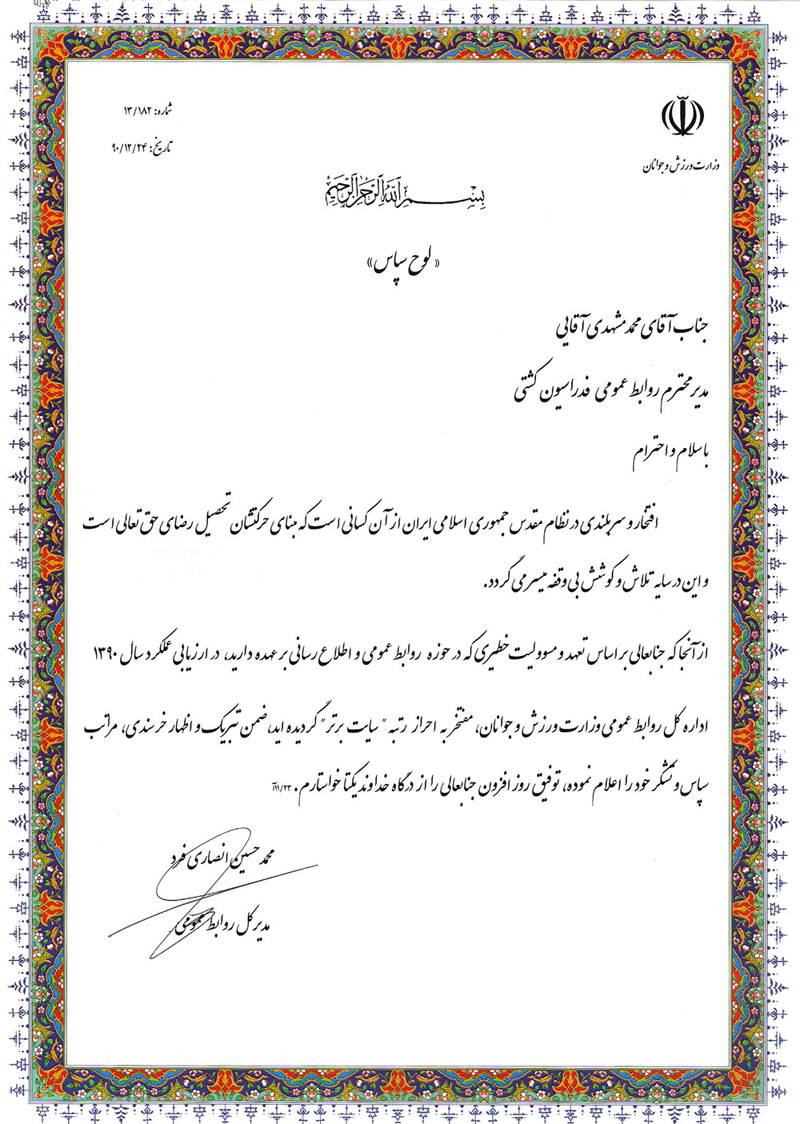 شماره: ۱۳/۱۸۲
تاریخ: ۹۰/۱۲/۲۴
وزارت ورزش و جوانان
بسم الله الرحمن الرحیم
« لوح سپاس»
جناب آقای محمد مشهدی آقایی
مدیر محترم روابط عمومی فدراسیون کشتی
با سلام و احترام
افتخار و سربلندی در نظام مقدس جمهوری اسلامی ایران از آن کسانی است که مبنای حرکتشان تحصیل رضای حق تعالی است
و این در سایه تلاش و کوشش بی وقفه میسر می گردد.
از آنجا که جنابعالی بر اساس تعهد و مسوولیت خطیری که در حوزه روابط عمومی و اطلاع رسانی بر عهده دارید، در ارزیابی عملکرد سال ۱۳۹۰
اداره کل روابط عمومی وزارت ورزش و جوانان، مفتخر به احراز رتبه "سایت برتر" گردیده اید، ضمن تبریک و اظهار خرسندی، مراتب
سپاس و تشکر خود را اعلام نموده، توفیق روز افزون جنابعالی را از درگاه خداوند یکتا خواستارم.
محمد حسین انصاری فرد
مدیر کل روابط عمومی